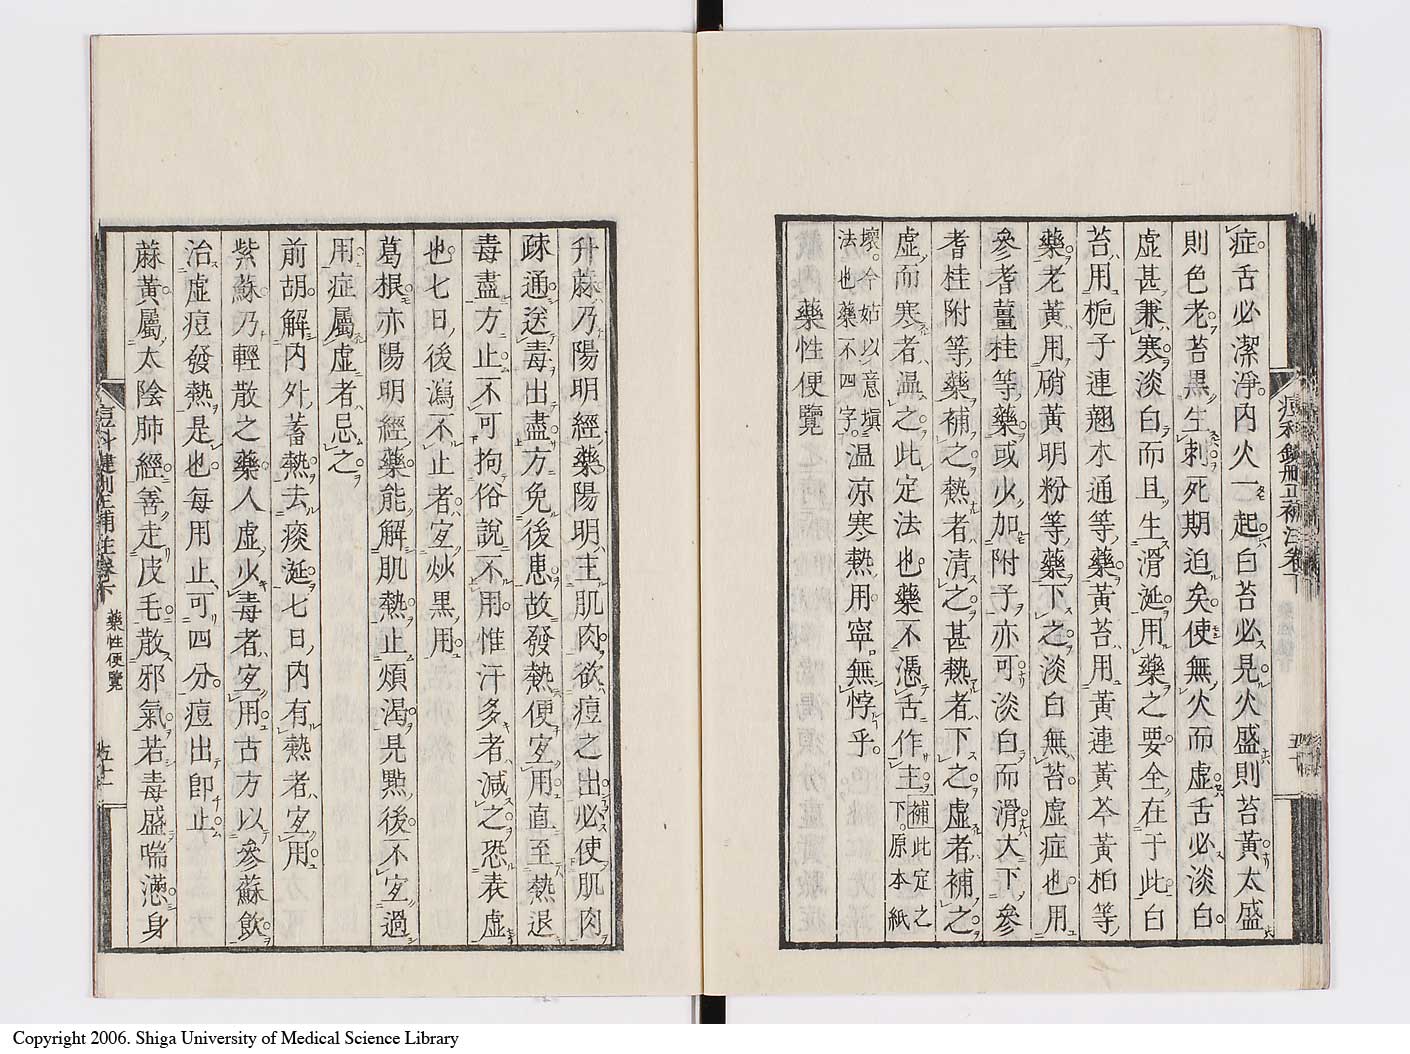 症舌必潔淨内火一起白苔必見火盛則苔黄太盛
則色老苔黒生刺死期迫矣使無火而虚舌必淡白
虚甚兼寒淡白而且生滑涎用藥之要全在于此白
苔用梔子連翹木通等藥黄苔用黄連黄芩黄栢等
藥老黄用硝黄明粉等藥下之淡白無苔虚症也用
參耆薑桂等藥或少加附子亦可淡白而滑大下參
耆桂附等藥補之熱者清之甚熱者下之虚者補之
虚而寒者温之此定法也藥不憑舌作主補此定之
下原本紙
壊今姑以意塡
法也藥不四字温凉寒熱用寧無悖乎
藥性便覽
升蔴乃陽明經藥陽明主肌肉欲痘之出必使肌肉
疎通送毒出盡方免後患故發熱便宜用直至熱退
毒盡方止不可拘俗說不用惟汗多者減之恐表虚
也七日後瀉不止者宜炒黒用
葛根亦陽明經藥能解肌熱止煩渇見㸃後不宜過
用症屬虚者忌之
前胡解内外蓄熱去痰涎七日内有熱者宜用
紫蘇乃輕散之藥人虚火毒者宜用古方以參蘇飲
治虚痘發熱是也每用止可四分痘出卽止
蔴黄屬太陰肺經善走皮毛散邪氣若毒盛喘懣身
藥性便覽
五十一